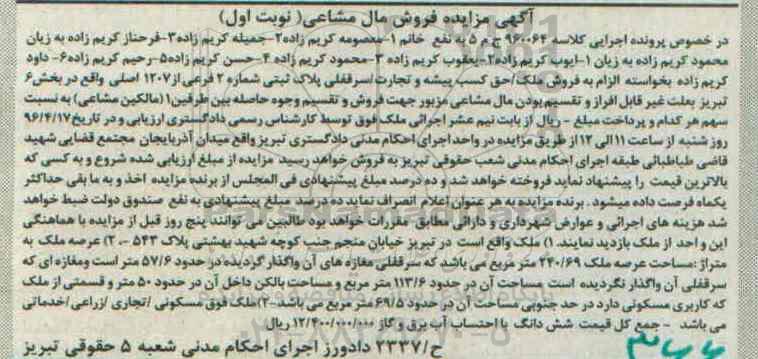 آگهی مزایده فروش مال مشاعی( نوبت اول)
در خصوص پرونده اجرایی کلاسه ۹۶۰۰۶۴ ج ۵ به نفع خانم ۱-معصومه کریم زاده۲-جمیله کریم زاده۳-فرحناز کریم زاده به زیان
محمود کریم زاده به زیان ۱-ایوب کریم زاده۲-یعقوب کریم زاده ۳-محمود کریم زاده ۴-حسن کریم زاده۵-رحیم کریم زاده۶- داود
کریم زاده بخواسته الزام به فروش ملک/حق کسب پیشه و تجارت/سرقفلی پلاک ثبتی شماره ۲ فرعی از۱۲۰۷ اصلی واقع در بخش۶
تبریز بعلت غیر قابل افراز و تقسیم بودن مال مشاعی مزبور جهت فروش و تقسیم وجوه حاصله بین طرفین۱(مالکین مشاعی) به نسبت
سهم هر کدام و پرداخت مبلغ - ریال از بابت نیم عشر اجرائی ملک فوق توسط کارشناس رسمی دادگستری ارزیابی و در تاریخ۹۶/۴/۱۷
روز شنبه از ساعت ۱۱الی ۱۲ از طریق مزایده در واحد اجرای احکام مدنی دادگستری تبریز واقع میدان آذربایجان مجتمع قضایی شهید
قاضی طباطبائی طبقه اجرای احکام مدنی شعب حقوقی تبریز به فروش خواهد رسید مزایده از مبلغ ارزیابی شده شروع و به کسی که
بالاترین قیمت را پیشنهاد نماید فروخته خواهد شد و ده درصد مبلغ پیشنهادی فی المجلس از برنده مزایده اخذ و به ما بقی حداکثر
یکماه فرصت داده میشود . برنده مزایده به هر عنوان اعلام انصراف نماید ده درصد مبلغ پیشنهادی به نفع صندوق دولت ضبط خواهد
شد هزینه های اجرائی و عوارض شهرداری و دارائی مطابق مقررات خواهد بود طالبین می توانند پنج روز قبل از مزایده با هماهنگی
این واحد از ملک بازدید نمایند. ۱) ملک واقع است در تبریز خیابان منجم جنب کوچه شهید بهشتی پلاک ۵۴۳ -. ۲) عرصه ملک به
متراژ :مساحت عرصه ملک ۲۴۰/۶۹ متر مربع می باشد که سرقفلی مغازه های آن واگذار گردیده در حدود ۵۷/۶ متر است ومغازه ای که
سرقفلی آن واگذار نگردیده است مساحت آن در حدود ۱۱۳/۶ متر مربع و مساحت بالکن داخل آن در حدود ۵۰ متر و قسمتی از ملک
که کاربری مسکونی دارد در حد جنوبی مساحت آن در حدود ۶۹/۵ متر مربع می باشد -۲)ملک فوق مسکونی /تجاری /زراعی/خدماتی
می باشد - جمع کل قیمت شش دانگ با احتساب آب برق و گاز ۱۲/۴۰۰/۰۰۰/۰۰۰ ریال
ح/۲۳۳۷ دادورز اجرای احکام مدنی شعبه ۵ حقوقی تبریز